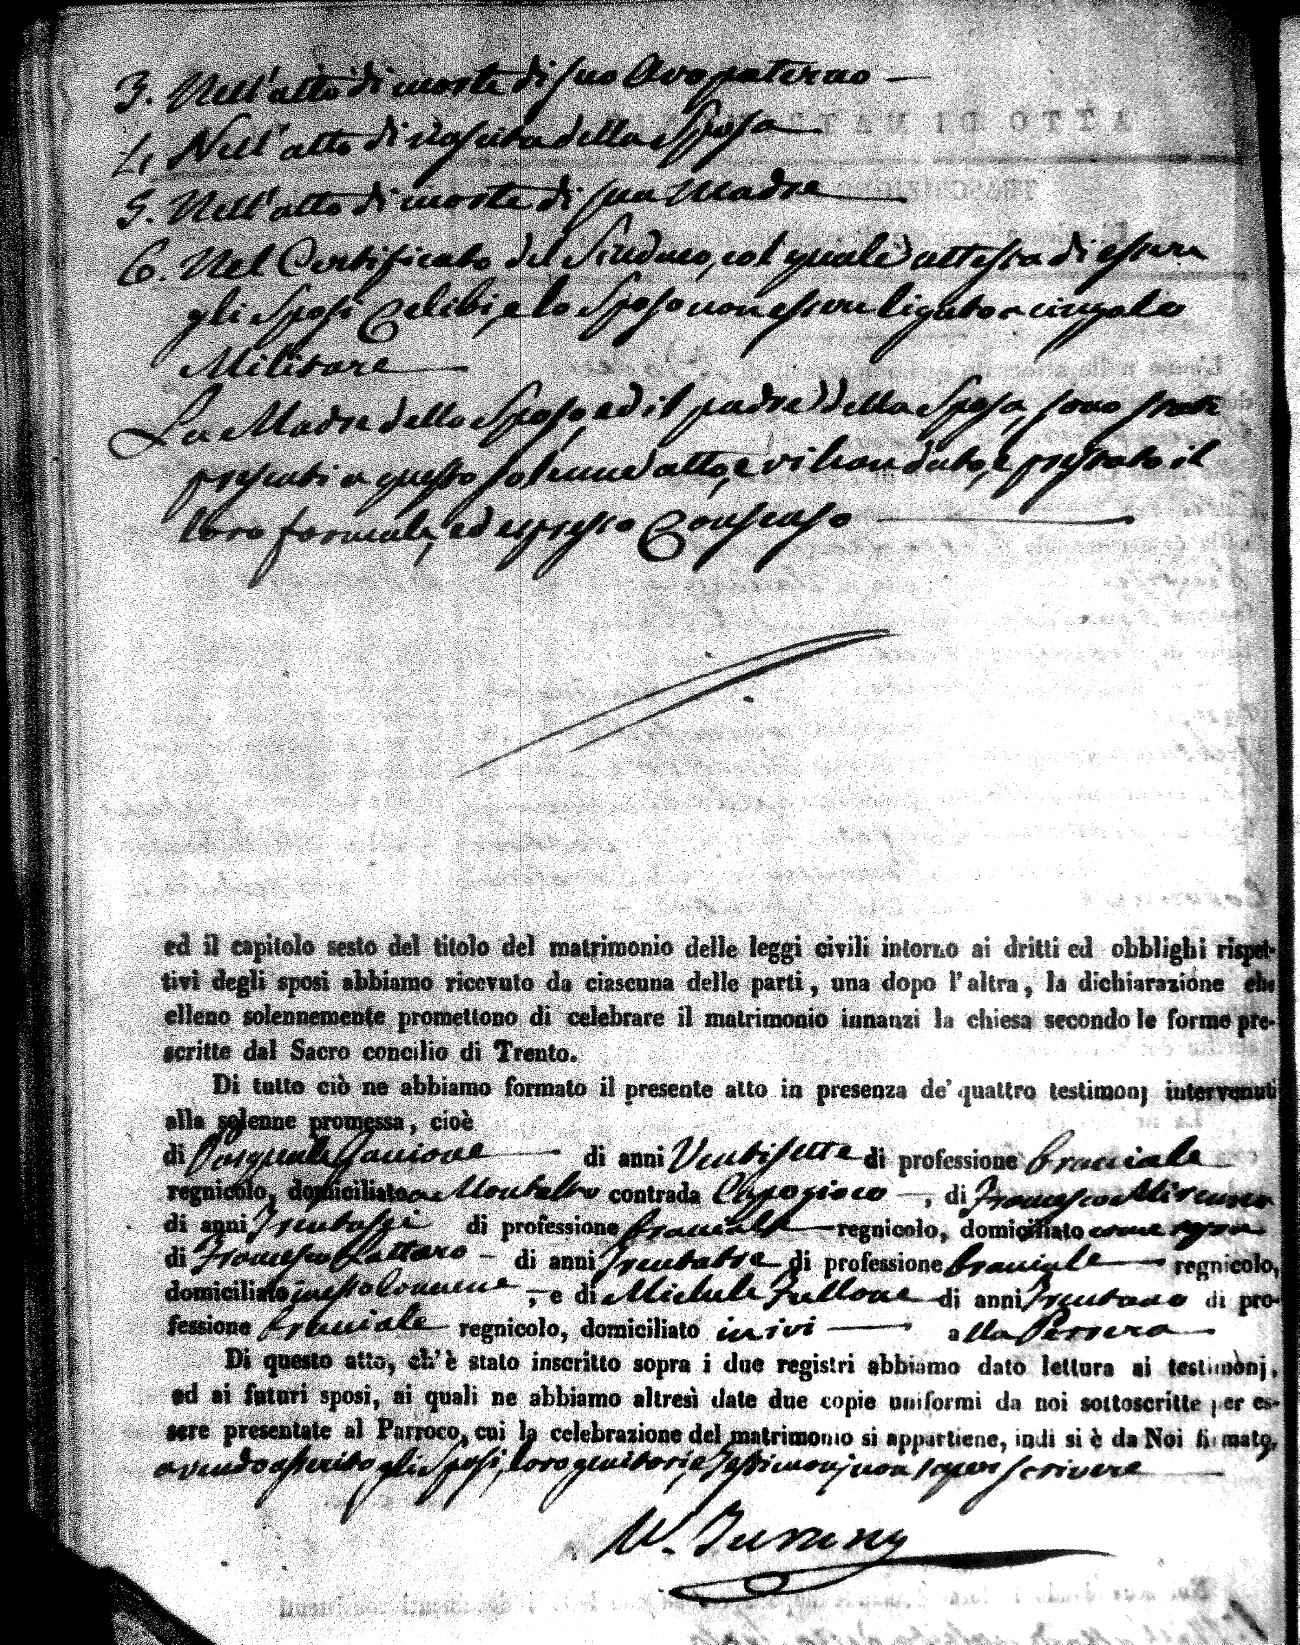 3. Nell'atto di morte di suo Avo paterno —
4. Nell'atto di nascita della Sposa —
5. Nell'atto di morte di sua Madre —
6. Nel Certificato del Sindaco, col quale attesta di essere
gli Sposi Celibi, e lo Sposo non essere ligato a cingolo
Militare —
La Madre dello Sposo, ed il padre della Sposa, sono stati
presenti a questo solenne atto, e vi han dato, e prestato il
loro formale, ed espresso Consenso —
ed il capitolo sesto del titolo del matrimonio delle leggi civili intorno ai dritti ed obblighi rispet-
tivi degli sposi abbiamo ricevuto da ciascuna delle parti, una dopo l'altra, la dichiarazione che
elleno solennemente promettono di celebrare il matrimonio innanzi la chiesa secondo le forme pre-
scritte dal Sacro concilio di Trento.
Di tutto ciò ne abbiamo formato il presente atto in presenza de' quattro testimonj intervenuti
alla solenne promessa, cioè
di Pasquale di anni Ventisette di professione bracciale
regnicolo, domiciliato a Montalto contrada , di Francesco
di anni Trentasei di professione bracciale regnicolo, domiciliato come sopra
di Francesco Lattaro — di anni Trentatre di professione bracciale — regnicolo,
domiciliato in questo Comune —, e di Michele Fullone — di anni di pro-
fessione bracciale regnicolo, domiciliato in ivi — alla
Di questo atto, ch'è stato inscritto sopra i due registri abbiamo dato lettura ai testimonj,
ed ai futuri sposi, ai quali ne abbiamo altresì date due copie uniformi da noi sottoscritte per es-
sere presentate al Parroco, cui la celebrazione del matrimonio si appartiene, indi si è da Noi firmato,
avendo asserito gli Sposi, loro genitori, e Testimonj non saper scrivere —